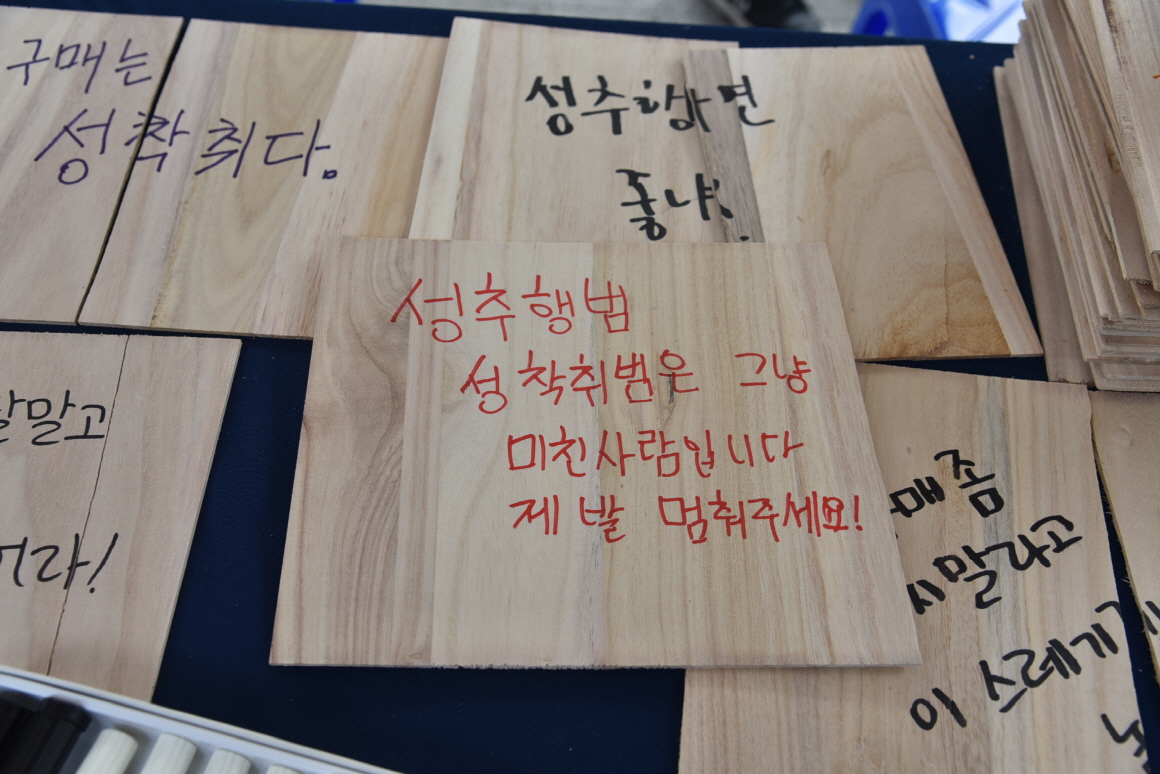 구매는
성착취다.
성추행하면
좋냐!
성추행범
성착취범은 그냥
미친사람입니다
제발 멈춰주세요!
말고
라!
매좀
시말라고
이 스레기